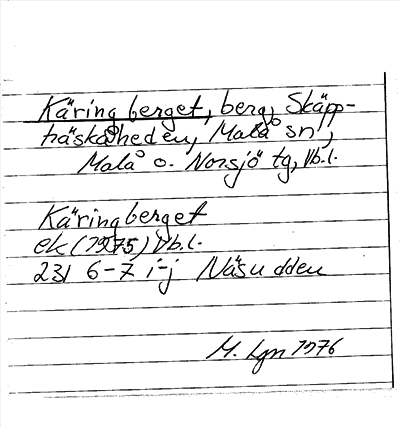 Käringberget, berg, Skäpp-
träskheden, Malå sn,
Malå o. Norsjö tg, Vb.l.
Käringberget
ek (1975) Vb.l.
231 6-7 i-j Näsudden
M. Lgn 1976